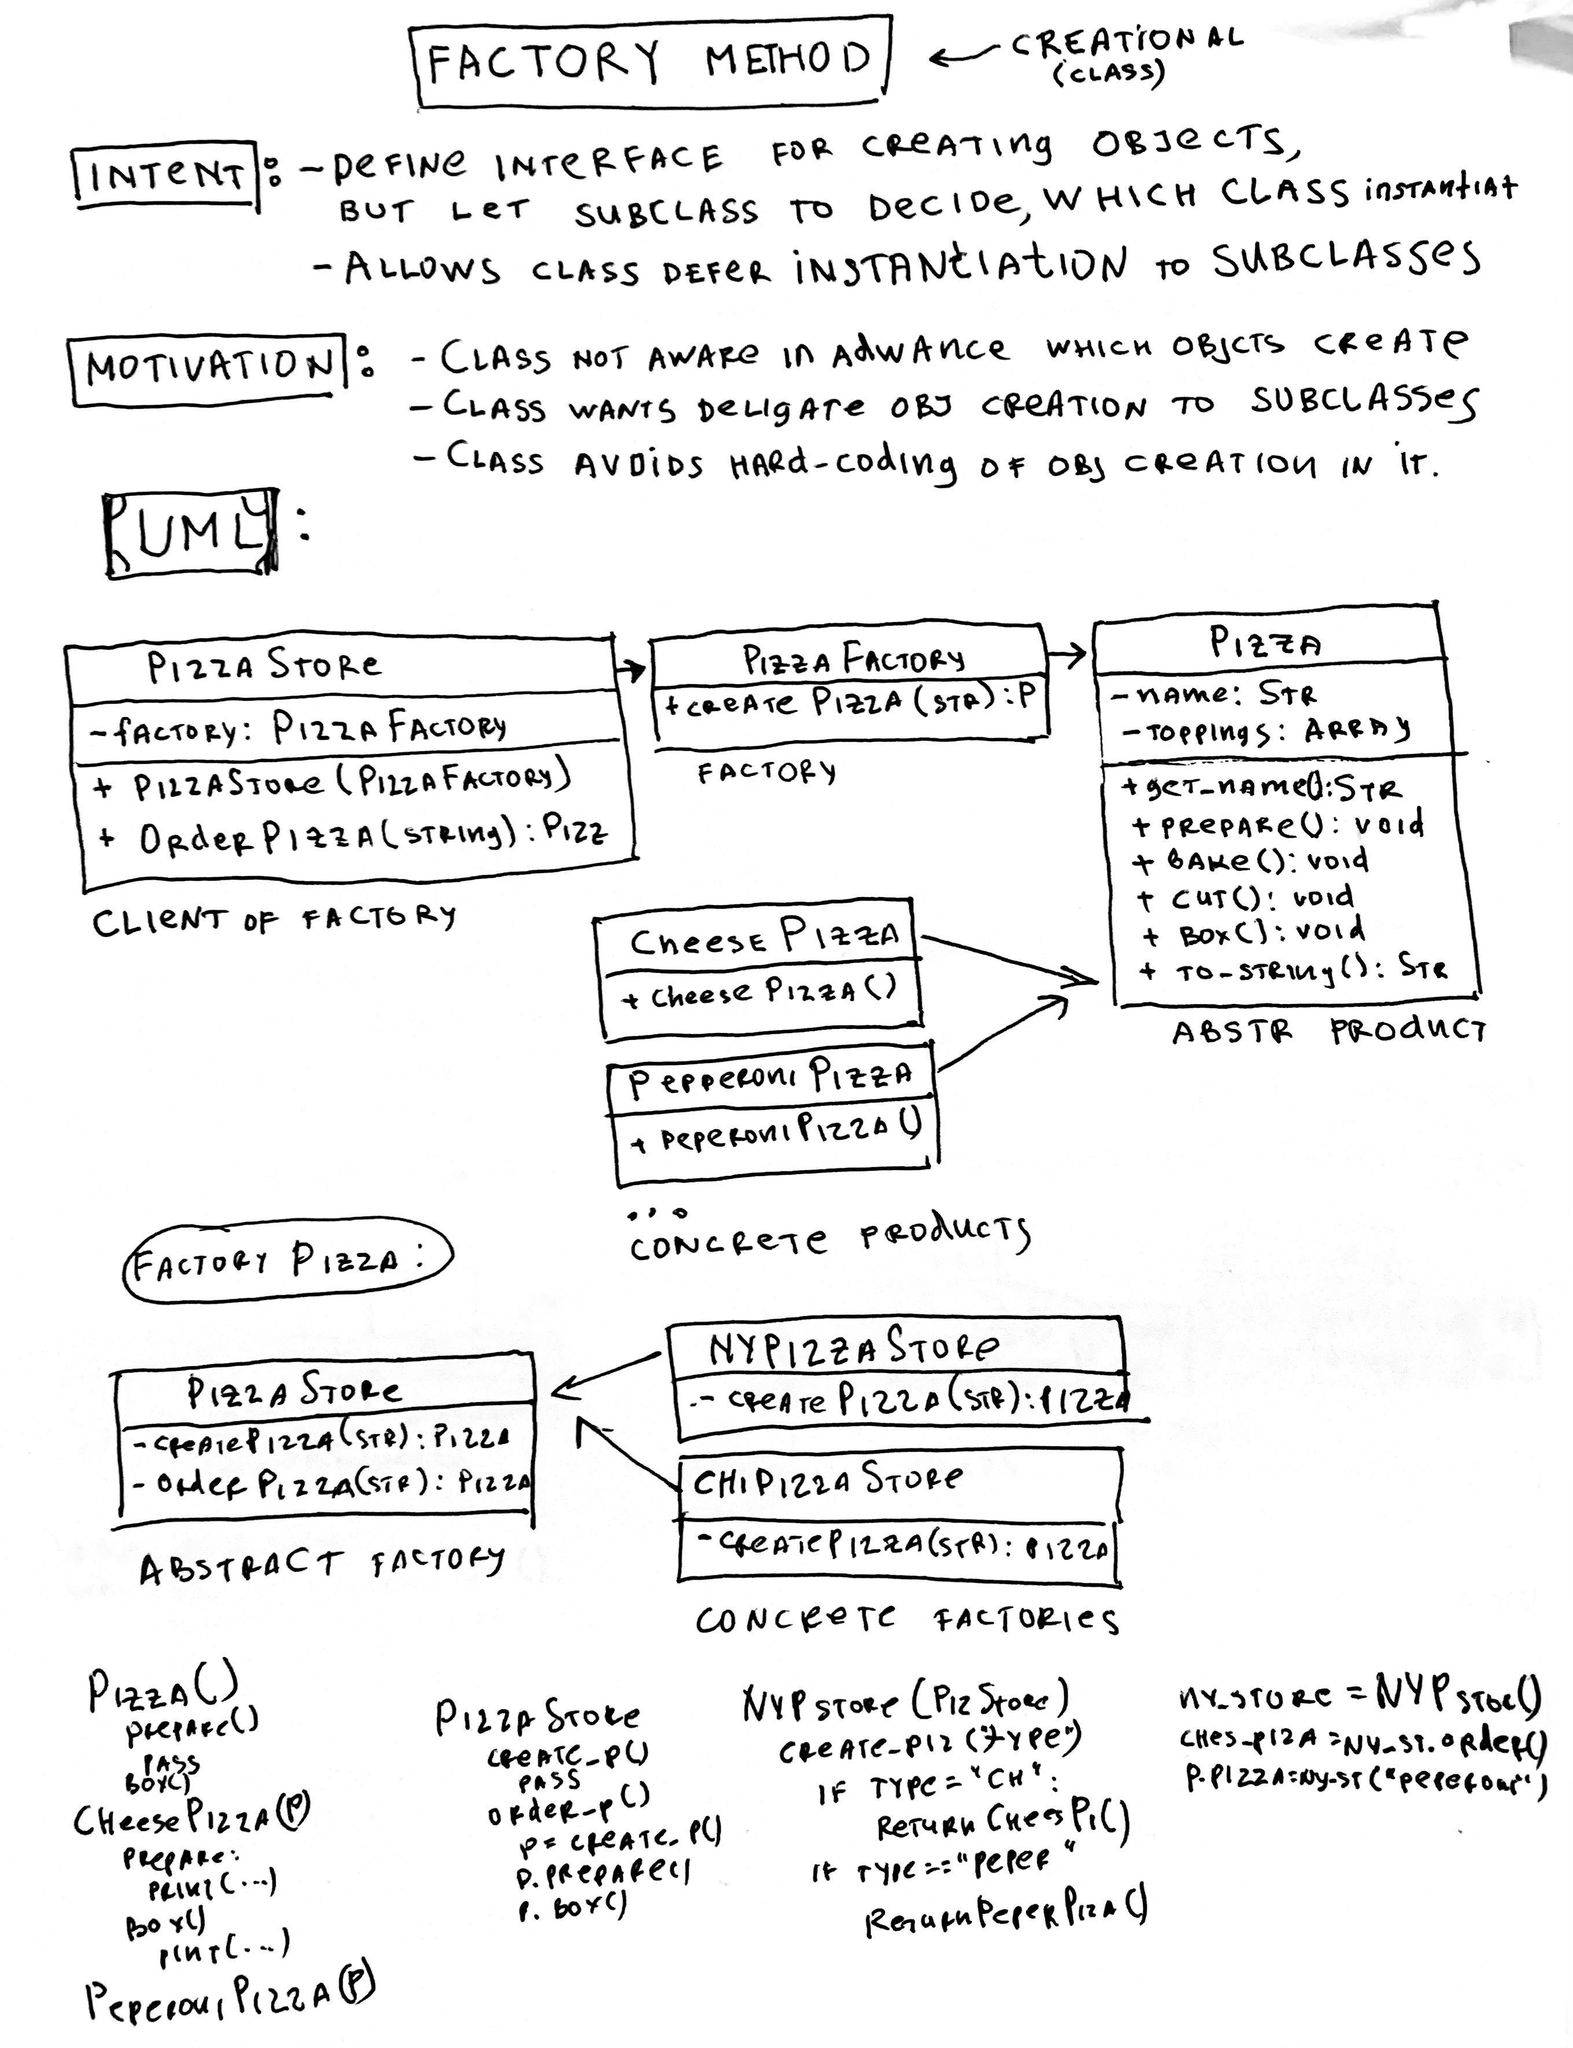 FACTORY METHOD
← CREATIONAL
(CLASS)
INTENT: - DEFINE INTERFACE FOR CREATING OBJECTS,
BUT LET SUBCLASS TO DECIDE, WHICH CLASS INSTANTIAT
- ALLOWS CLASS DEFER INSTANTIATION TO SUBCLASSES
MOTIVATION: - CLASS NOT AWARE IN ADWANCE WHICH OBJCTS CREATE
- CLASS WANTS DELIGATE OBJ CREATION TO SUBCLASSES
- CLASS AVOIDS HARD-CODING OF OBJ CREATION IN IT.
UML:
PIZZA STORE
- FACTORY: PIZZA FACTORY
+ PIZZASTORE (PIZZAFACTORY)
+ ORDER PIZZA (STRING): PIZZ
CLIENT OF FACTORY
PIZZA FACTORY
+ CREATE PIZZA (STR): P
FACTORY
PIZZA
- NAME: STR
- TOPPINGS: ARRAY
+ GET_NAME(): STR
+ PREPARE(): VOID
+ BAKE(): VOID
+ CUT(): VOID
+ BOX(): VOID
+ TO-STRING(): STR
ABSTR PRODUCT
CHEESE PIZZA
+ CHEESE PIZZA()
PEPPERONI PIZZA
+ PEPERONI PIZZA()
...
CONCRETE PRODUCTS
FACTORY PIZZA:
PIZZA STORE
- CREATEPIZZA (STR): PIZZA
- ORDER PIZZA(STR): PIZZA
ABSTRACT FACTORY
NYPIZZA STORE
- CREATE PIZZA (STR): PIZZA
CHIPIZZA STORE
- CREATEPIZZA(STR): PIZZA
CONCRETE FACTORIES
PIZZA()
PREPARE()
PASS
BOX()
CHEESE PIZZA(P)
PREPARE:
PRINT(...)
BOX()
PINT(...)
PEPERONI PIZZA(P)
PIZZA STORE
CREATE_P()
PASS
ORDER_P()
P = CREATE_P()
P.PREPARE()
P.BOX()
NYPSTORE (PIZ STORE)
CREATE_PIZ ("TYPE")
IF TYPE = "CH":
RETURN CHEESPI()
IF TYPE == "PEPER"
RETURN PEPER PIZA()
NY_STORE = NYPSTOE()
CHES_PIZA = NY_ST.ORDER()
P.PIZZA = NY-ST("PEPERONI")